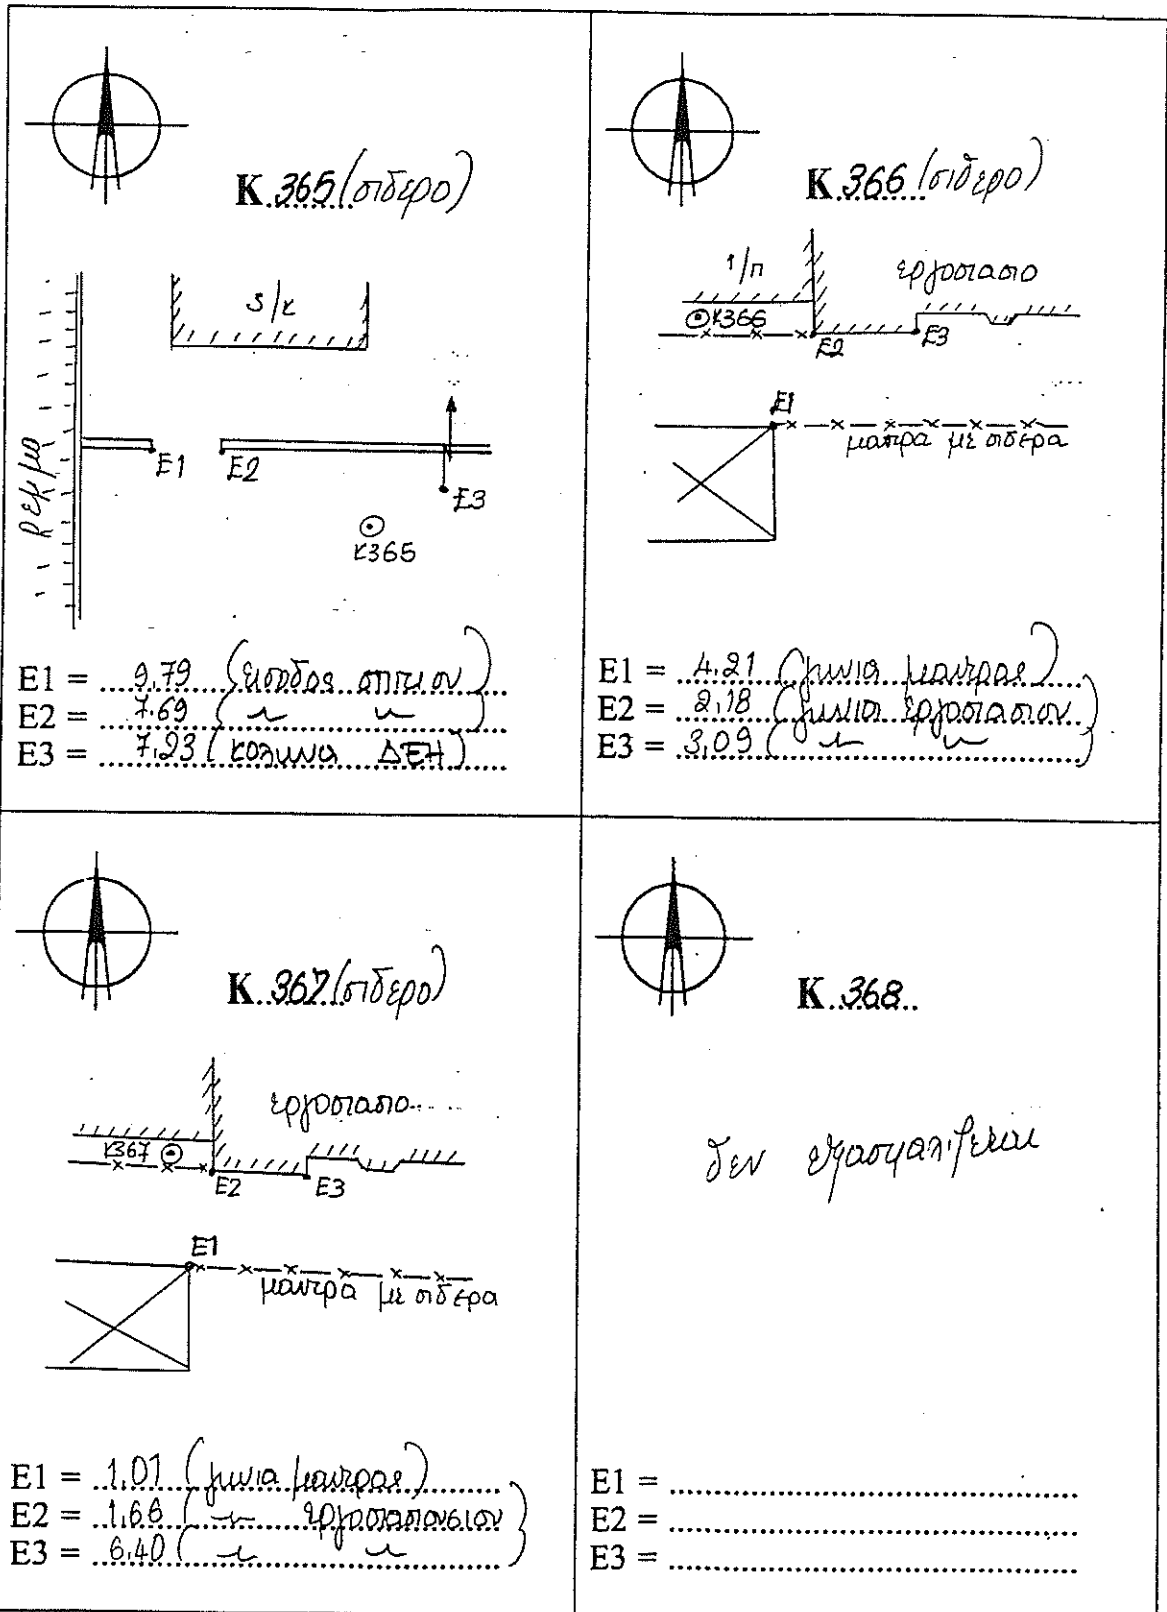 K.365 (σιδερο)
3/κ
ρεμμα
E1
E2
E3
K365
E1 = 9,79 (εισοδος σπιτιου)
E2 = 7.69 ( 〃 〃 )
E3 = 7,23 (κολωνα ΔΕΗ)
K.366 (σιδερο)
1/π
εργοστασιο
K366
E2
E3
E1
μαντρα με σιδερα
E1 = 4.21 (γωνια μαντρας)
E2 = 2,18 (γωνια εργοστασιου)
E3 = 3,09 ( 〃 〃 )
K.367 (σιδερο)
εργοστασιο
K367
E2
E3
E1
μαντρα με σιδερα
E1 = 1.01 (γωνια μαντρας)
E2 = 1,66 ( 〃
E3 = 6,40 ( 〃 〃 )
K.368
δεν εξασφαλιζεται
E1 =
E2 =
E3 =